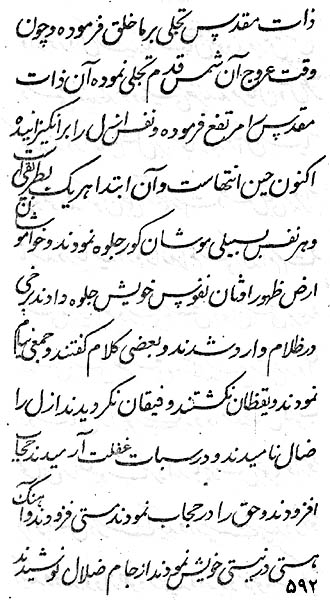 ذات مقدس تجلی بر ما خلق فرموده و چون
وقت عروج آن شمس قدم تجلی نموده آن ذات
مقدس امر مرتفع فرموده و نفس ازل را برانگیزانیده
اکنون حین انتهاست و آن ابتدا هر یک
و هر نفس بسبیلی موشان کور جلوه نمودند و خواموشان
ارض ظهور اوثان نفوس خویش جلوه دادند برخی
در ظلام وارد شدند و بعضی کلام گفتند و جمعی
نمودند و یقظان نگشتند و فیقان نگردیدند ازل را
ضال نامیدند و در سبات غفلت آرمیدند حجاب
افزودند و حق را در حجاب نمودند مستی فزودند و آهنگ
هستی در نیستی خویش نمودند از جام ضلال نوشیدند
۵۹۲